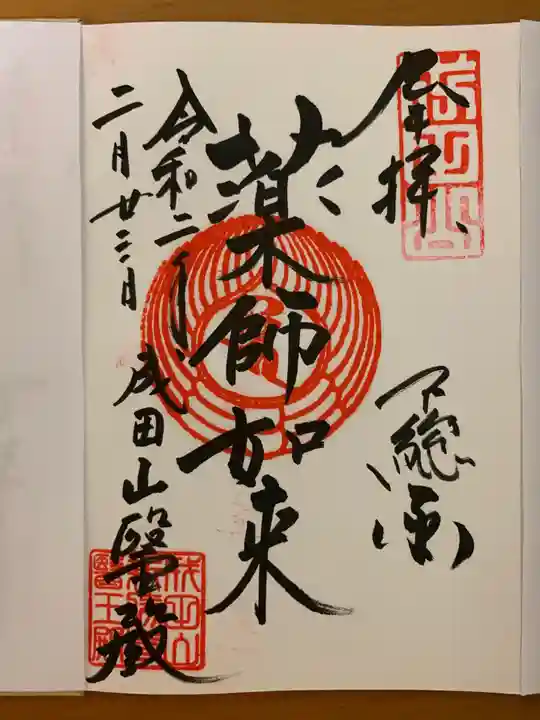 奉拝
下総國
薬師如来
令和二年
二月廿三日
成田山醫